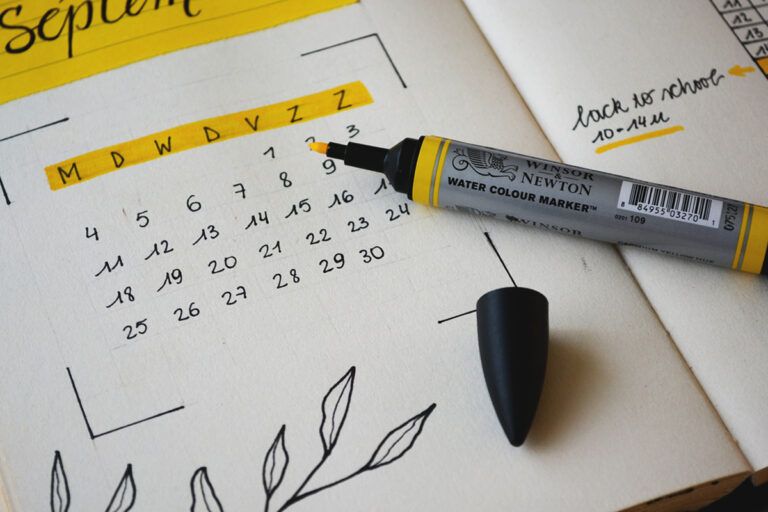 Septem
M D W D V Z Z
1 2 3
4 5 6 7 8 9
11 12 13 14 15 16
18 19 20 21 22 23 24
25 26 27 28 29 30
11
12
13
14
back to school
10-14u
WINSOR
&
NEWTON
WATER COLOUR MARKER™
0201 109
8 84955 03270 1
WINSOR